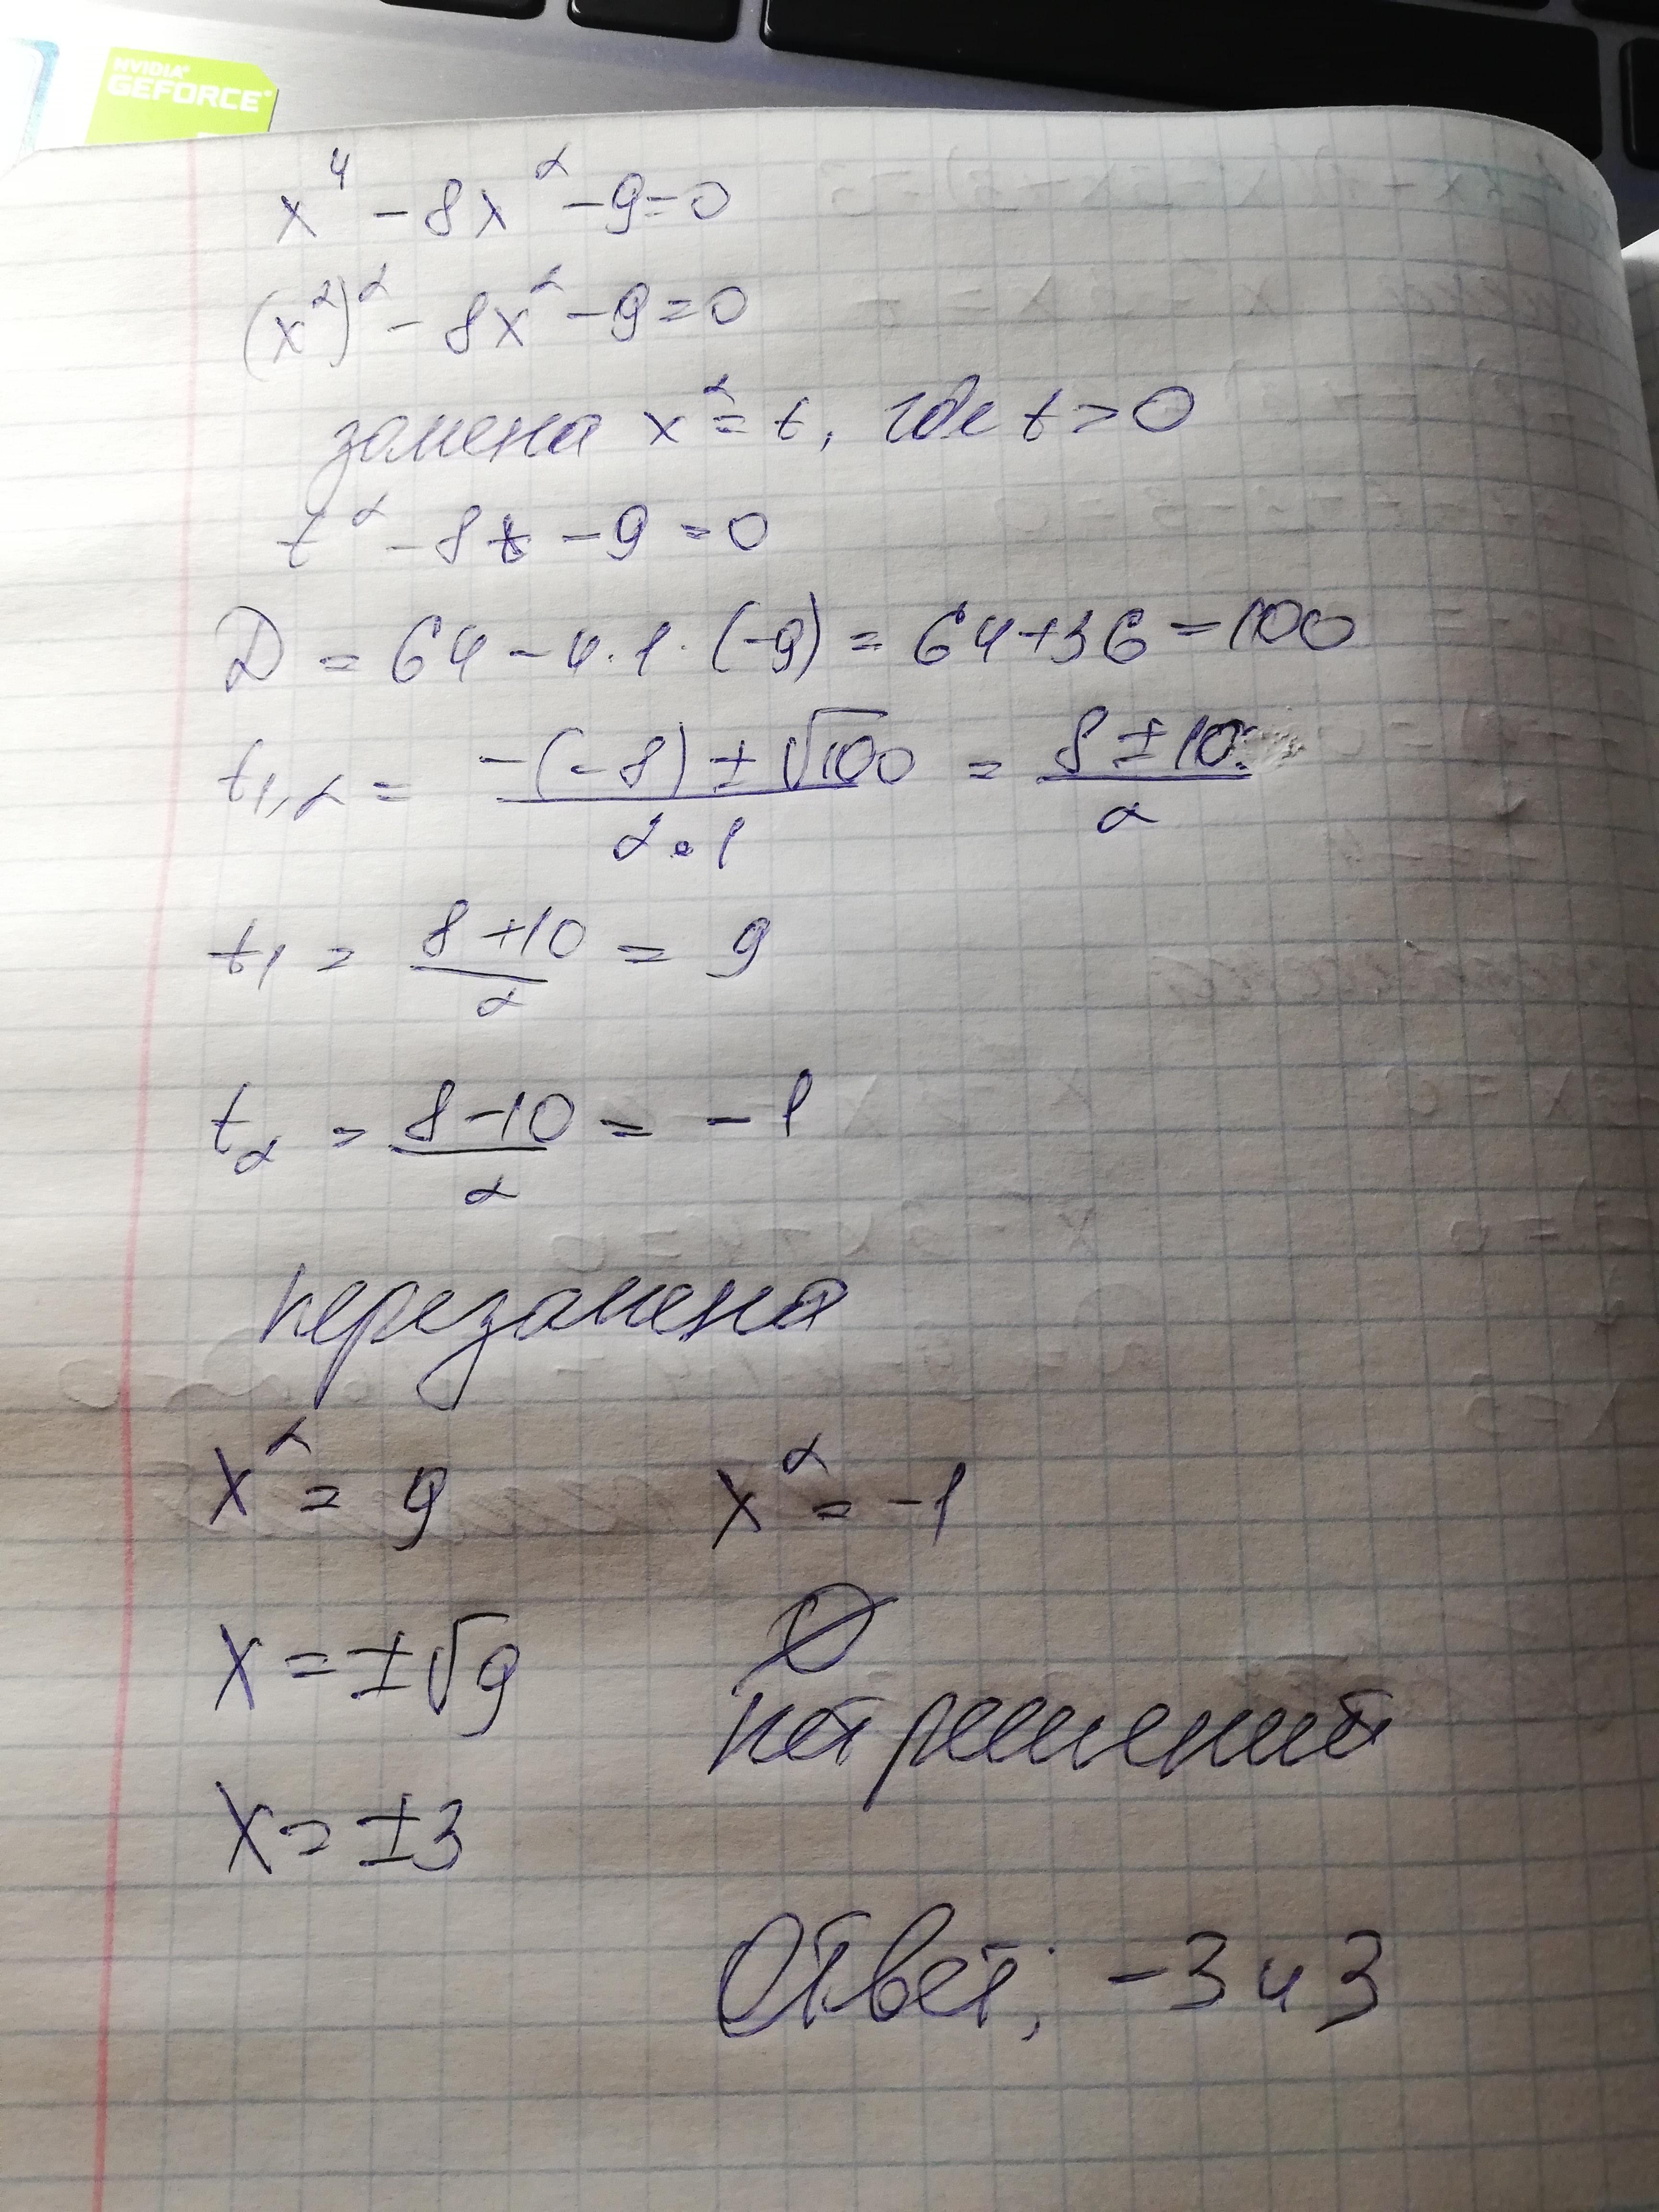 NVIDIA®
GEFORCE®
x⁴ - 8x² - 9 = 0
(x²)² - 8x² - 9 = 0
замена x² = t, где t > 0
t² - 8t - 9 = 0
D = 64 - 4 · 1 · (-9) = 64 + 36 = 100
t1,2 = (-(-8) ± √100)/(2 · 1) = (8 ± 10)/2
t1 = (8 + 10)/2 = 9
t2 = (8 - 10)/2 = -1
перезамена
x² = 9 x² = -1
x = ±√9 Ø
нет решений
x = ±3
Ответ: -3 и 3